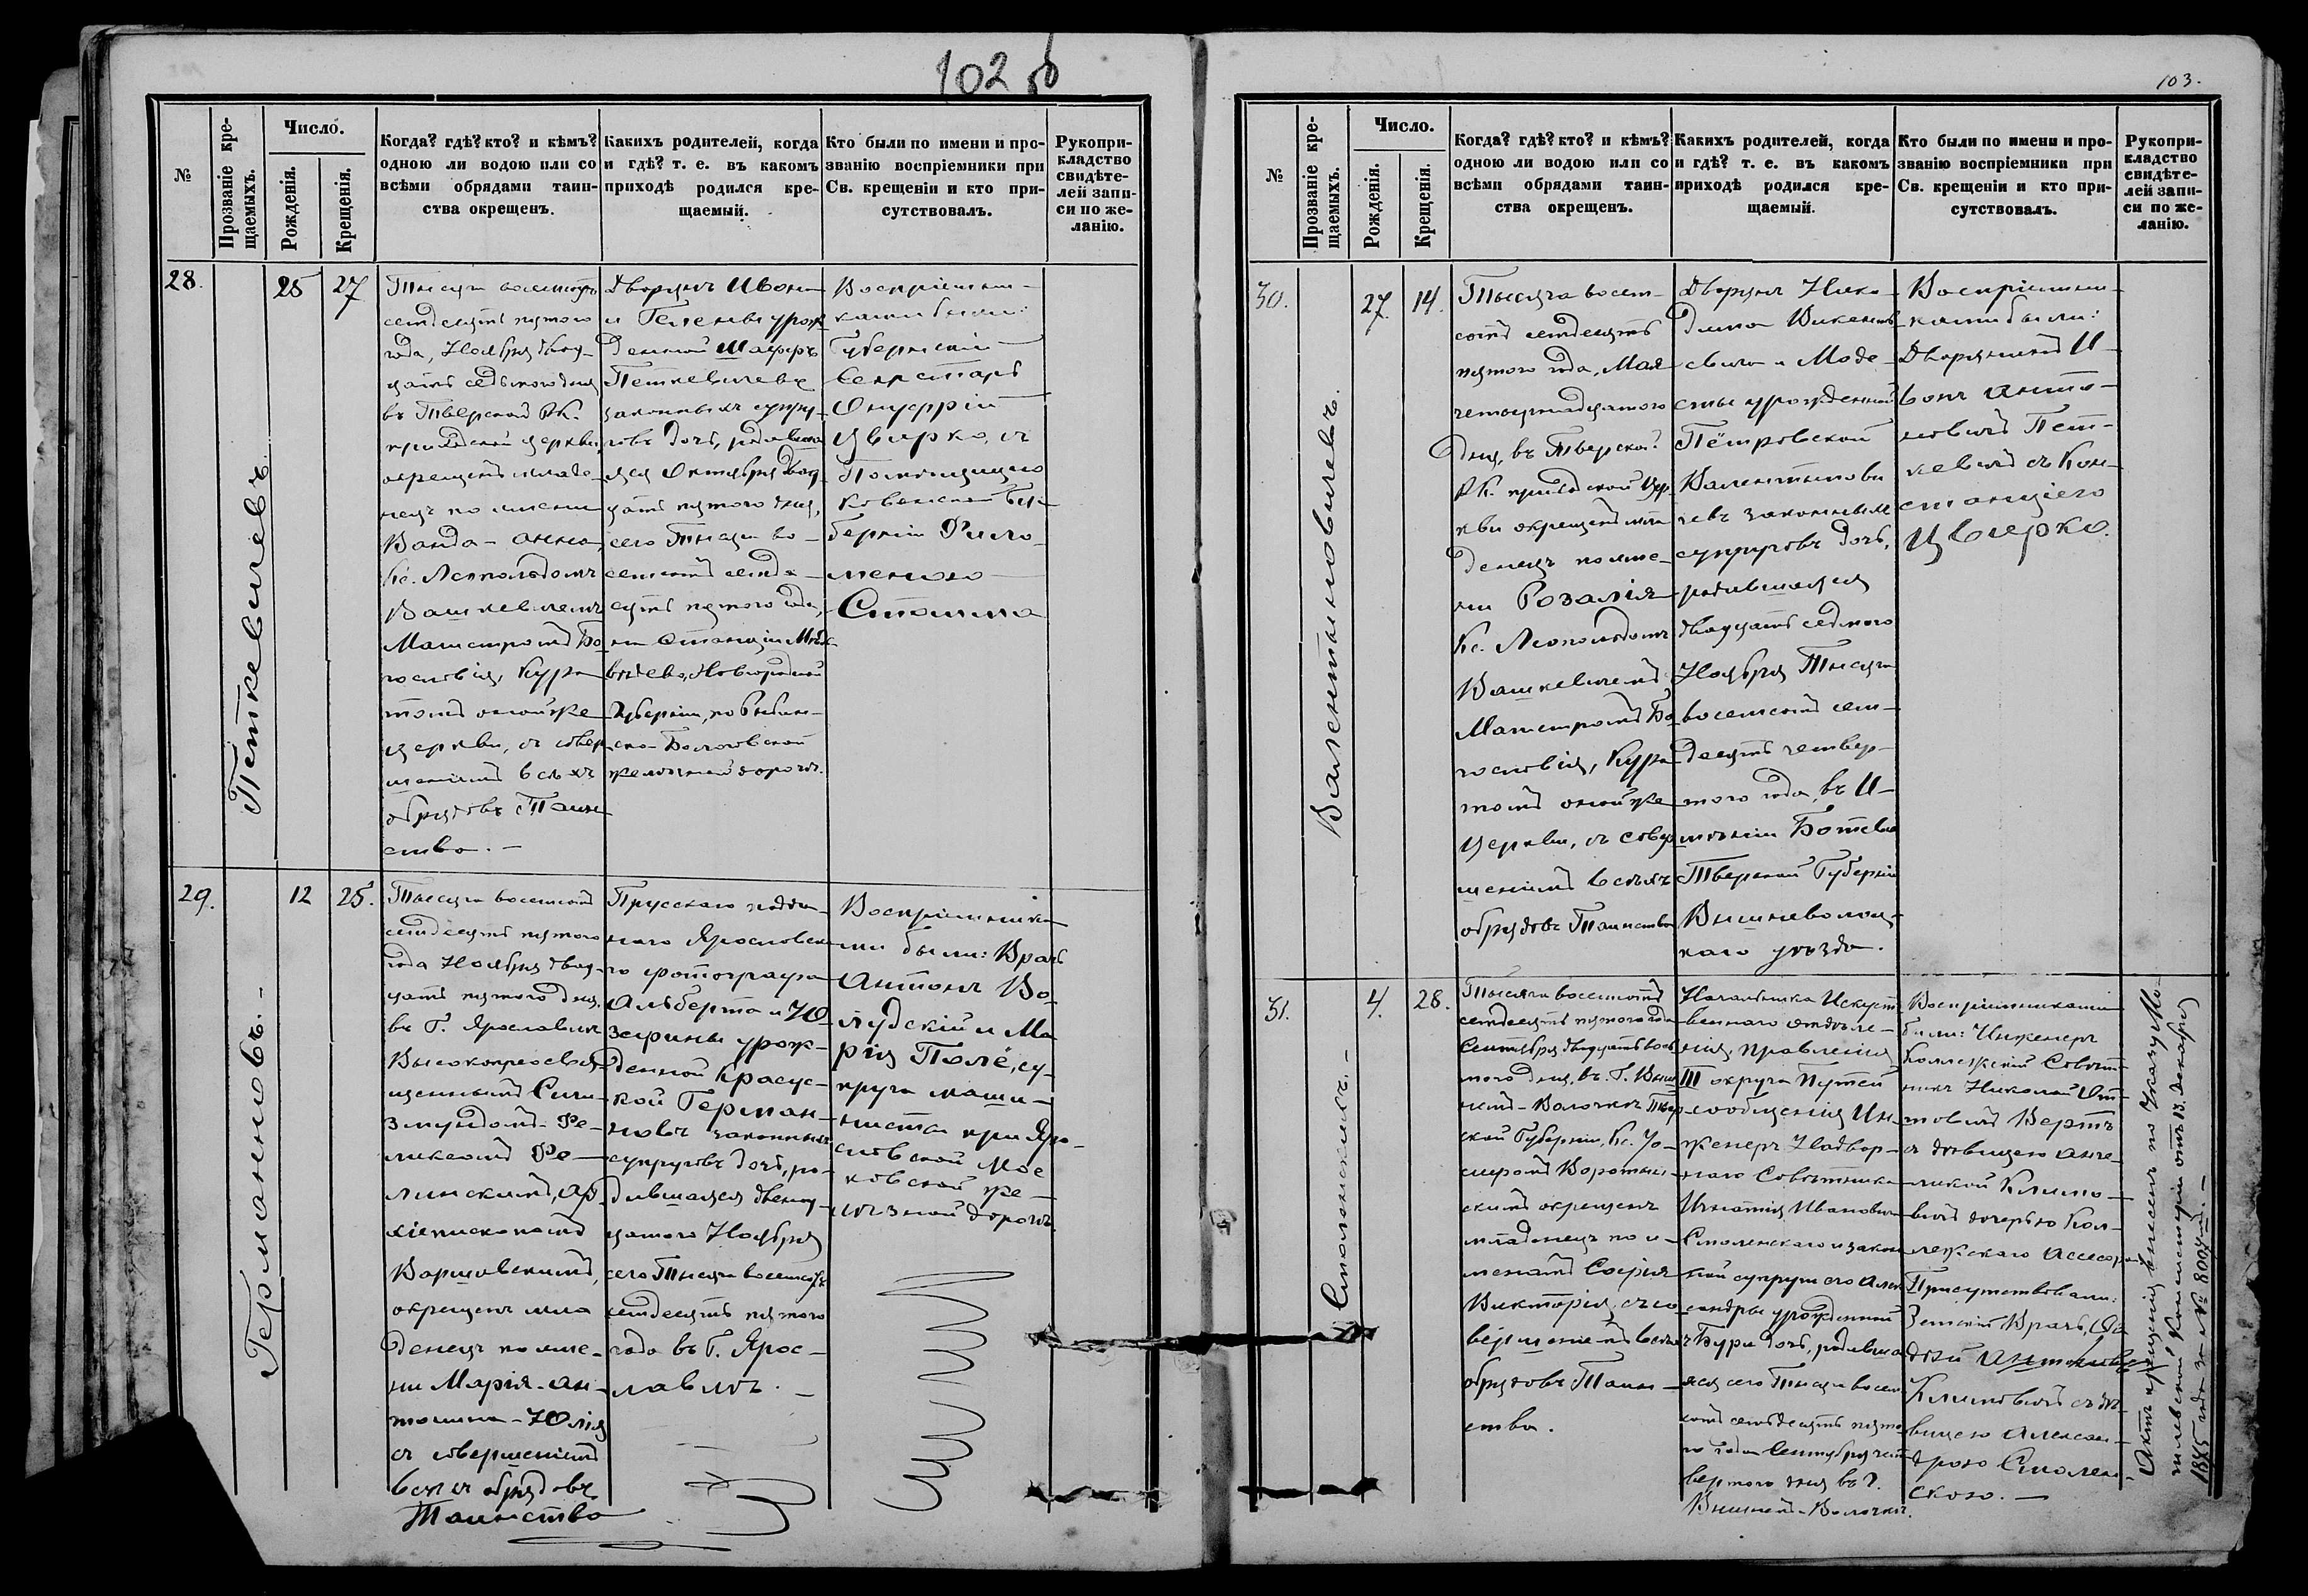 102 об
№
Прозваніе кре-
щаемыхъ.
Число.
Рожденія.
Крещенія.
Когда? гдѣ? кто? и кѣмъ?
одною ли водою или со
всѣми обрядами таин-
ства окрещенъ.
Какихъ родителей, когда
и гдѣ? т. е. въ какомъ
приходѣ родился кре-
щаемый.
Кто были по имени и про-
званію воспріемники при
Св. крещеніи и кто при-
сутствовалъ.
Рукопри-
кладство
свидѣте-
лей запи-
си по же-
ланію.
28.
Петкевичевъ.
25
27
Тысяча восемьсотъ
семдесятъ пятого
года, Ноября двад-
цать седьмого дня
въ Тверской РК.
приходской церкви,
окрещенъ младе-
нецъ по имени
Ванда-Анна,
Кс. Леопольдомъ
Вашкевичемъ
Магистромъ Бо-
гословія, Кура-
томъ оной же
церкви, съ совер-
шеніемъ всѣхъ
обрядовъ Таин-
ства. —
Дворянъ Ивана
и Гелены урож-
денной Шафръ
Петкевичевъ
законныхъ супру-
говъ дочь, родивша-
яся Октября двад-
цать пятого дня,
сего Тысяча во-
семьсотъ семде-
сятъ пятого года,
на Станціи Мѣд-
вѣдево, Новгородской
Губерніи, по Рыбин-
ско-Бологовской
желѣзной дорогѣ.
Воспріемни-
ками были:
Губернскій
Секретарь
Онуфрій
Цвирко, съ
Помещицею
Ковенской Гу-
берніи Фило-
меною
Стомма
29.
Германновъ. —
12
25.
Тысяча восемьсотъ
семдесятъ пятого
года Ноября двад-
цать пятого дня,
въ Г. Ярославлѣ
Высокопреосвя-
щеннымъ Сигиз-
мундомъ-Фе-
ликсомъ Фе-
линскимъ, Ар-
хіепископомъ
Варшавскимъ,
окрещенъ мла-
денецъ по име-
ни Марія-Ан-
тонина-Юлія
съ совершеніемъ
всѣхъ обрядовъ
Таинства
Прусскаго поддан-
наго Ярославска-
го фотографа
Альберта и Юо-
зефины урож-
денной Красус-
кой Герман-
новъ законныхъ
супруговъ дочь, ро-
дившаяся двенад-
цатого Ноября
сего Тысяча восемьсотъ
семдесятъ пятого
года въ Г. Ярос-
лавлѣ. —
Воспріемника-
ми были: Врачъ
Антонъ Во-
лудскій и Ма-
рія Полё, су-
пруга маши-
ниста при Яро-
славской Мос-
ковской же-
лѣзной дорогѣ
103.
№
Прозваніе кре-
щаемыхъ.
Число.
Рожденія.
Крещенія.
Когда? гдѣ? кто? и кѣмъ?
одною ли водою или со
всѣми обрядами таин-
ства окрещенъ.
Какихъ родителей, когда
и гдѣ? т. е. въ какомъ
приходѣ родился кре-
щаемый.
Кто были по имени и про-
званію воспріемники при
Св. крещеніи и кто при-
сутствовалъ.
Рукопри-
кладство
свидѣте-
лей запи-
си по же-
ланію.
30.
Валентыновичевъ.
27.
14.
Тысяча восем-
сотъ семдесятъ
пятого года, Мая
четырнадцатого
дня, въ Тверской
РК. приходской Цер-
кви окрещенъ мла-
денецъ по име-
ни Розалія
Кс. Леопольдомъ
Вашкевичемъ
Магистромъ Бо-
гословія, Кура-
томъ оной же
Церкви, съ совер-
шеніемъ всѣхъ
обрядовъ Таинства
Дворянъ Нико-
дима Викенть-
евича и Моде-
сты урожденной
Пётровской
Валентынови-
чевъ законныхъ
супруговъ дочь,
родившаяся
двадцать седмого
Ноября Тысяча
восемьсотъ сем-
десятъ четвер-
того года, въ И-
мѣніи Ботево
Тверской Губерніи
Вышневолоц-
каго уѣзда.
Воспріемни-
ками были:
Дворянинъ И-
ванъ Анто-
новичъ Пет-
кевичъ съ Кон-
станціею
Цвирко.
31.
Смоленскихъ. —
4.
28.
Тысяча восемьсотъ
семдесятъ пятого года
Сентября двадцать вось-
мого дня, въ Г. Выш-
немъ-Волочкѣ Твер-
ской Губерніи, Кс. Іо-
сифомъ
скимъ окрещенъ
младенецъ по и-
менамъ Софія
Викторія, съ со-
вершеніемъ всѣхъ
обрядовъ Таин-
ства.
Начальника Искуст-
веннаго отдѣле-
нія, правленія
III округа Путей
сообщенія Ин-
женеръ Надвор-
наго Совѣтника
Игнатія Ивановича
Смоленскаго и закон-
ной супруги его Алек-
сандры урожденной
Бури дочь, родивша-
яся сего Тысяча восемь-
сотъ семьдесятъ пято-
го года Сентября чет-
вертого дня въ Г.
Вышнемъ-Волочкѣ.
Воспріемниками
были: Инженеръ
Коллежскій Совѣт-
никъ Николай От-
товичъ Вертъ
съ дѣвицею Анге-
ликой Климо-
вичъ дочерью Кол-
лежскаго Ассесора.
Присутствовали:
Земскій Врачъ,
Антоновичъ
Климовичъ съ дѣ-
вицею Алексан-
дрою Смолен-
скою. —
Актъ крещенія внесенъ по Указу Мо-
гилевской Консисторіи отъ 13. Декабря
1875 года за № 8004-мъ. —